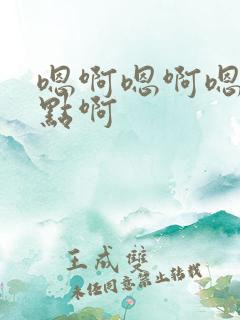 嗯啊嗯啊嗯
點啊
王成雙
未经同意禁止转载